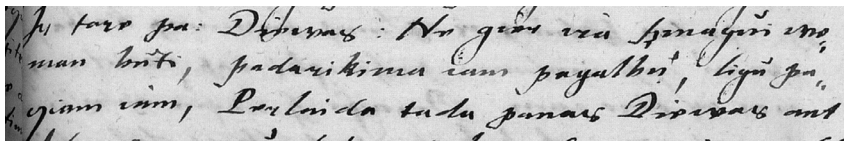 Ir tare pa: Diewas: Ne gier ira szmagui wie,
man buti, padarikima iam pagalbų, ligu pa,
giam iam, Perlaida tada panas Diewas ant